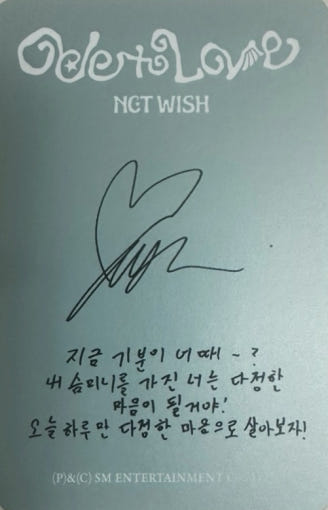 Ode to Love
NCT WISH
지금 기분이 어때~?
내 솜피니를 가진 너는 다정한
마음이 될거야!
오늘 하루만 다정한 마음으로 살아보자!
(P)&(C) SM ENTERTAINMENT